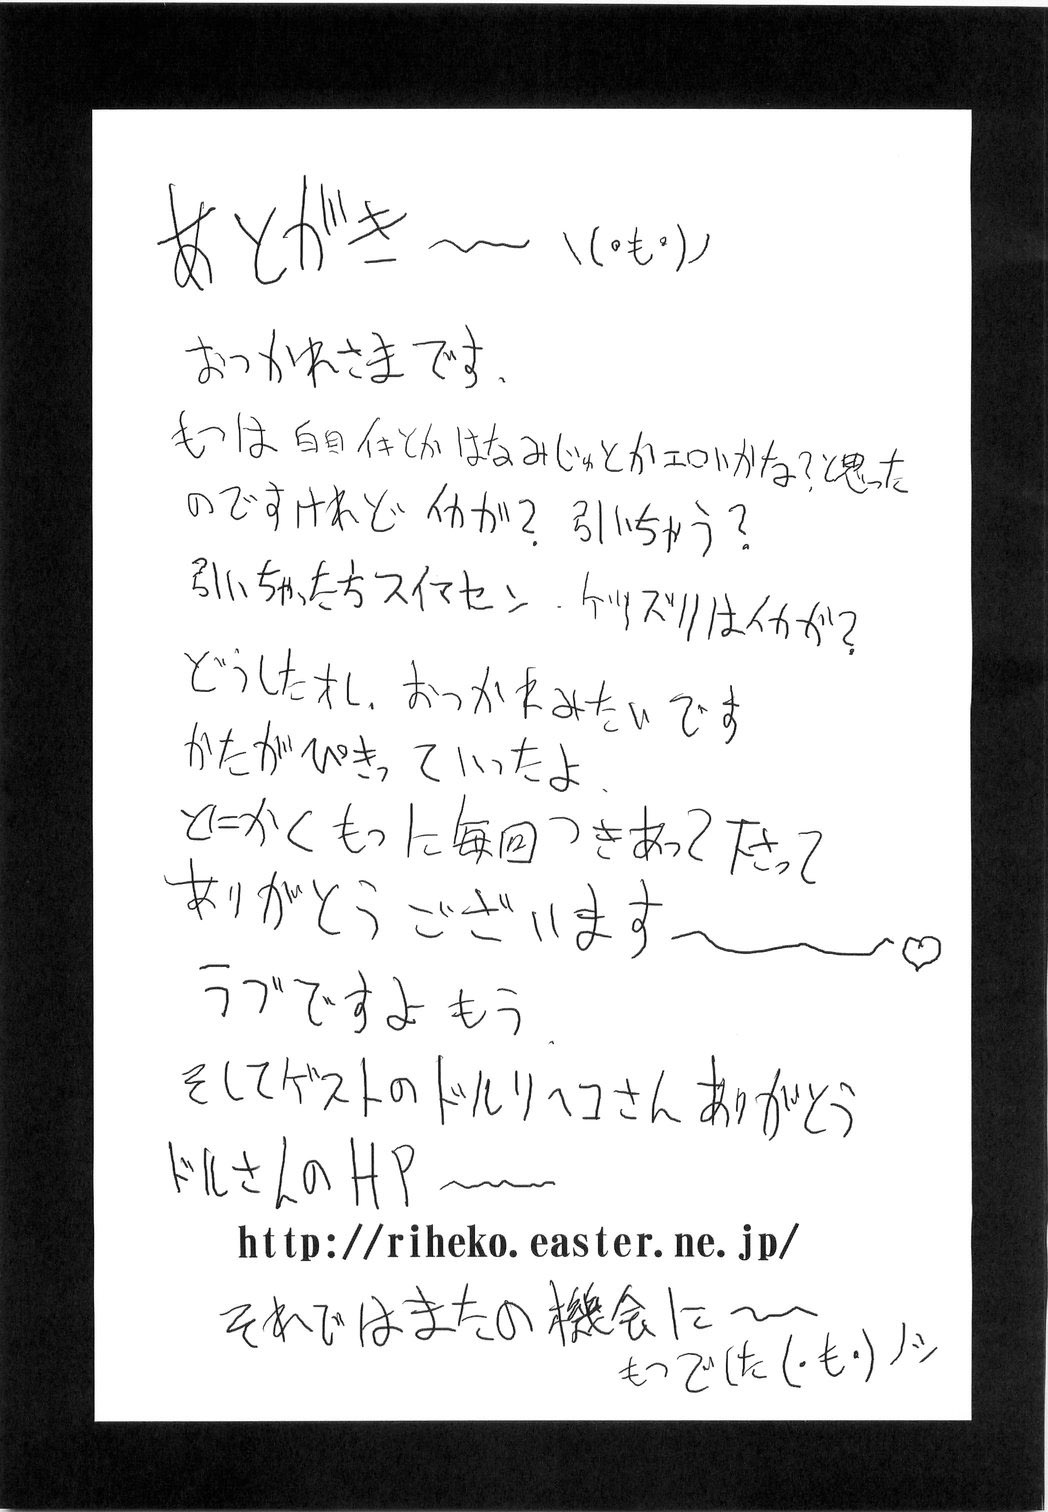 あとがき〜〜 \(°も°)ノ
おつかれさまです、
もつは白目イキとかはなみじゅとかエロいかな?と思った
のですけれど イカが? 引いちゃう?
引いちゃったらスイマセン. ケツズリはイカが?
どうしたオレ、おつかれみたいです
かたがぴきっていったよ、
とにかくもつに毎回つきあって下さって
ありがとうございます〜〜♡
ラブですよもう、
そしてゲストのドルリヘコさんありがとう
ドルさんのHP〜〜
http://riheko.easter.ne.jp/
それではまたの機会に〜〜
もつでした(・も・)ノシ